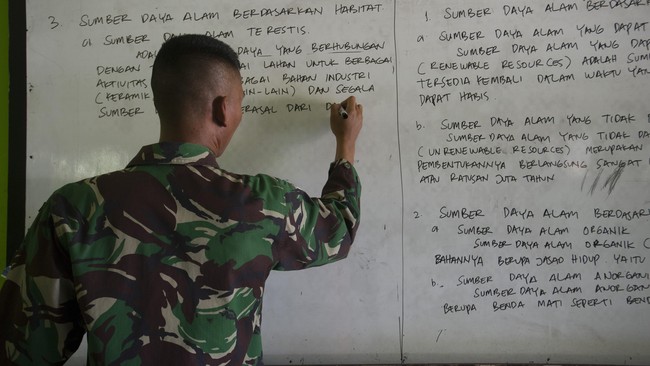 3. SUMBER DAYA ALAM BERDASARKAN HABITAT.
a. SUMBER DAYA ALAM TERESTIS.
ADA DAYA YANG BERHUBUNGAN
DENGAN AI LAHAN UNTUK BERBAGAI
AKTIVITAS BAGAI BAHAN INDUSTRI
(KERAMIK IN-LAIN) DAN SEGALA
SUMBER ERASAL DARI D
1. SUMBER DAYA ALAM BERDASARK
a SUMBER DAYA ALAM YANG DAPAT
SUMBER DAYA ALAM YANG DAP
(RENEWABLE RESOURCES) ADALAH SUM
TERSEDIA KEMBALI DALAM WAKTU YAN
DAPAT HABIS.
b. SUMBER DAYA ALAM YANG TIDAK D
SUMBER DAYA ALAM YANG TIDAK DA
(UNRENEWABLE RESOURCES) MERUPAKAN
PEMBENTUKANNYA BERLANGSUNG SANGAT
ATAU RATUSAN JUTA TAHUN
2 SUMBER DAYA ALAM BERDASAR
a SUMBER DAYA ALAM ORGANIK
SUMBER DAYA ALAM ORGANIK (
BAHANNYA BERUPA JASAD HIDUP YAITU
b. SUMBER DAYA ALAM ANORGANI
SUMBER DAYA ALAM ANORGAN
BERUPA BENDA MATI SEPERTI BEND